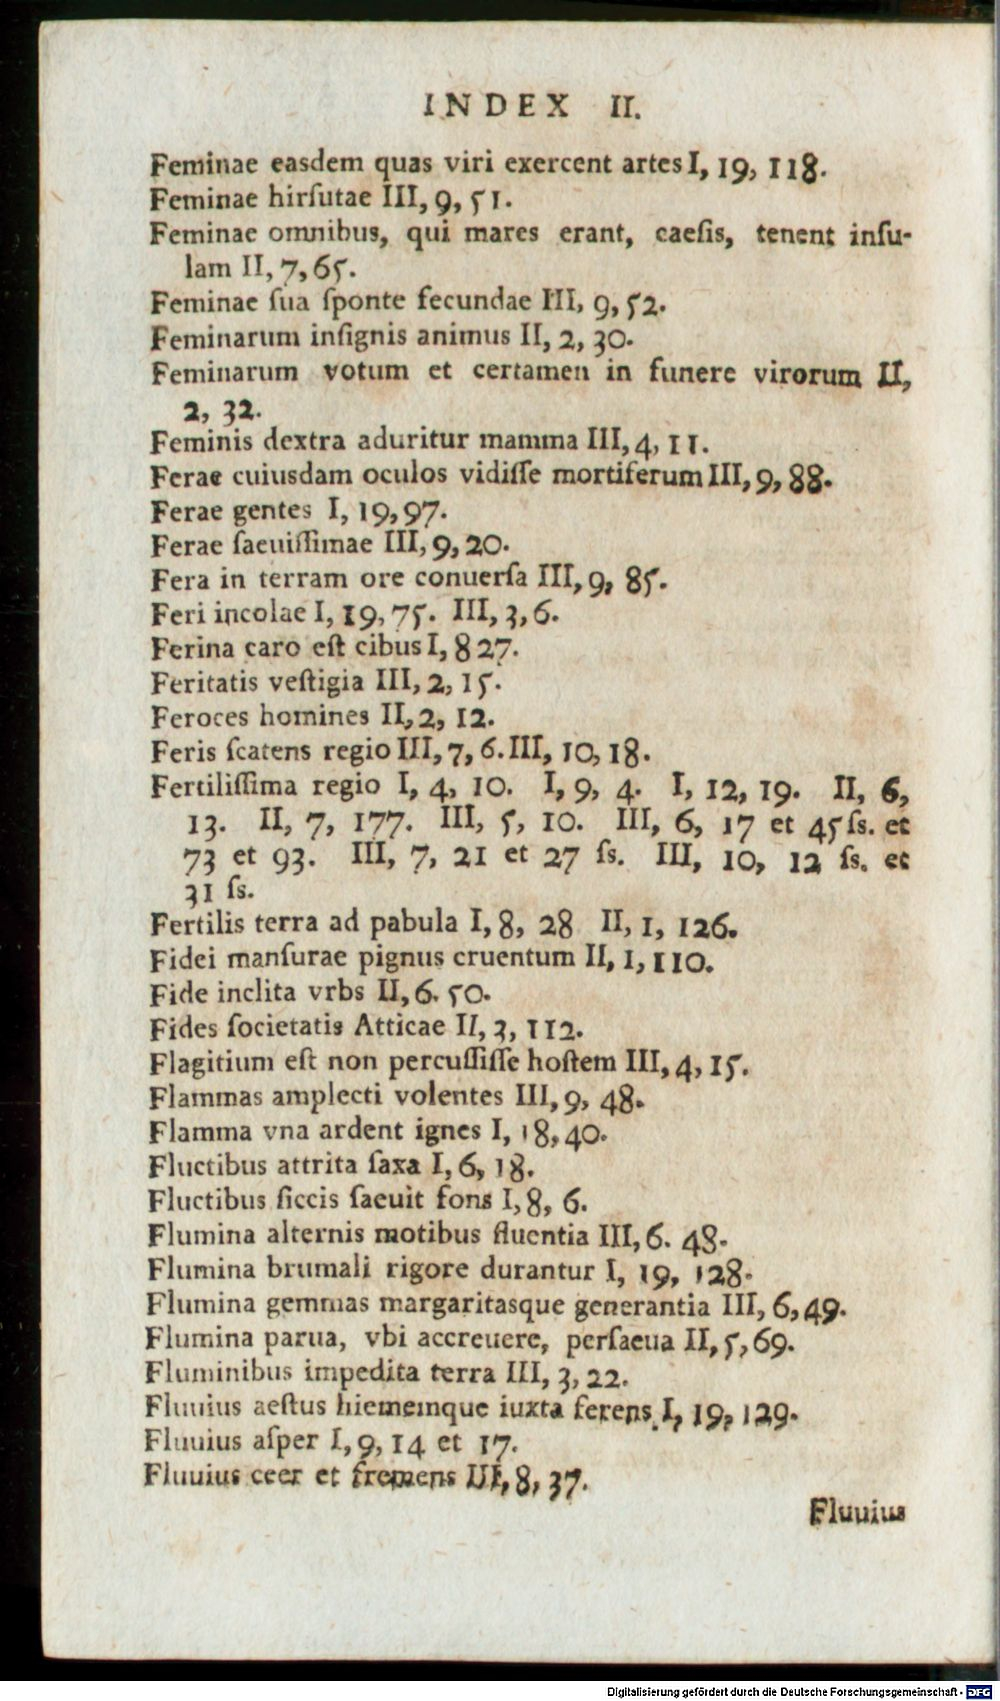 INDEX II.
Feminae easdem quas viri exercent artes I, 19, 118.
Feminae hirſutae III, 9, 51.
Feminae omnibus, qui mares erant, caeſis, tenent inſu-
lam II, 7, 65.
Feminae ſua ſponte fecundae III, 9, 52.
Feminarum inſignis animus II, 2, 30.
Feminarum votum et certamen in funere virorum II,
2, 32.
Feminis dextra aduritur mamma III, 4, 11.
Ferae cuiusdam oculos vidiſſe mortiferum III, 9, 88.
Ferae gentes I, 19, 97.
Ferae ſaeuiſſimae III, 9, 20.
Fera in terram ore conuerſa III, 9, 85.
Feri incolae I, 19, 75. III, 3, 6.
Ferina caro eſt cibus I, 8 27.
Feritatis veſtigia III, 2, 15.
Feroces homines II, 2, 12.
Feris ſcatens regio III, 7, 6. III, 10, 18.
Fertiliſſima regio I, 4, 10. I, 9, 4. I, 12, 19. II, 6,
13. II, 7, 177. III, 5, 10. III, 6, 17 et 45 ſs. et
73 et 93. III, 7, 21 et 27 ſs. III, 10, 12 ſs. et
31 ſs.
Fertilis terra ad pabula I, 8, 28 II, 1, 126.
Fidei manſurae pignus cruentum II, 1, 110.
Fide inclita vrbs II, 6. 50.
Fides ſocietatis Atticae II, 3, 112.
Flagitium eſt non percuſſiſſe hoſtem III, 4, 15.
Flammas amplecti volentes III, 9, 48.
Flamma vna ardent ignes I, 18, 40.
Fluctibus attrita ſaxa I, 6, 18.
Fluctibus ſiccis ſaeuit fons I, 8, 6.
Flumina alternis motibus fluentia III, 6. 48.
Flumina brumali rigore durantur I, 19, 128.
Flumina gemmas margaritasque generantia III, 6, 49.
Flumina parua, vbi accreuere, perſaeua II, 5, 69.
Fluminibus impedita terra III, 3, 22.
Fluuius aeſtus hiememque iuxta ferens I, 19, 129.
Fluuius aſper I, 9, 14 et 17.
Fluuius ceer et fremens III, 8, 37.
Fluuius
Digitalisierung gefördert durch die Deutsche Forschungsgemeinschaft - DFG